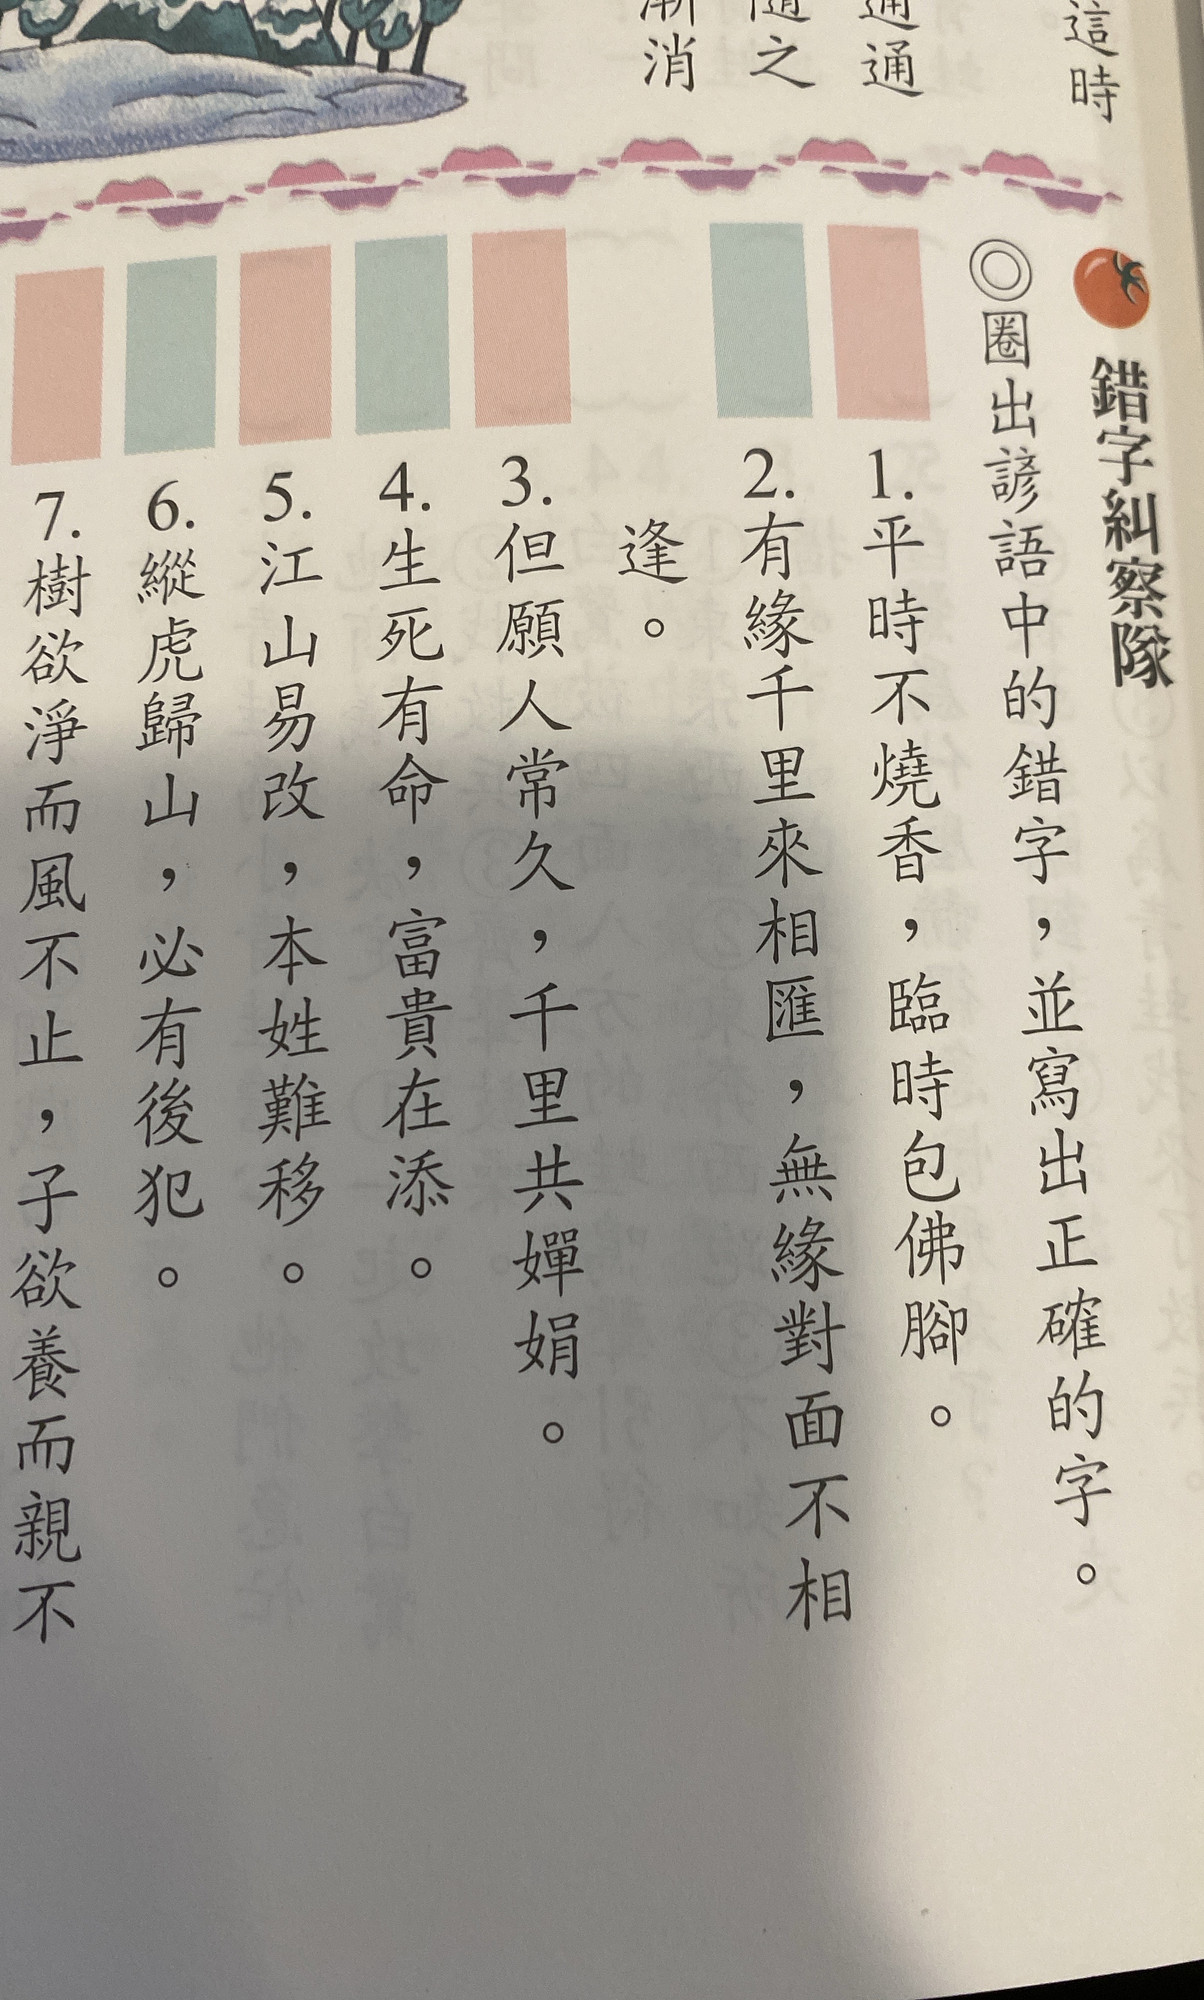 這時
通通
隨之
漸消
錯字糾察隊
◎圈出諺語中的錯字，並寫出正確的字。
1.平時不燒香，臨時包佛腳。
2.有緣千里來相匯，無緣對面不相
逢。
3.但願人常久，千里共嬋娟。
4.生死有命，富貴在添。
5.江山易改，本姓難移。
6.縱虎歸山，必有後犯。
7.樹欲淨而風不止，子欲養而親不